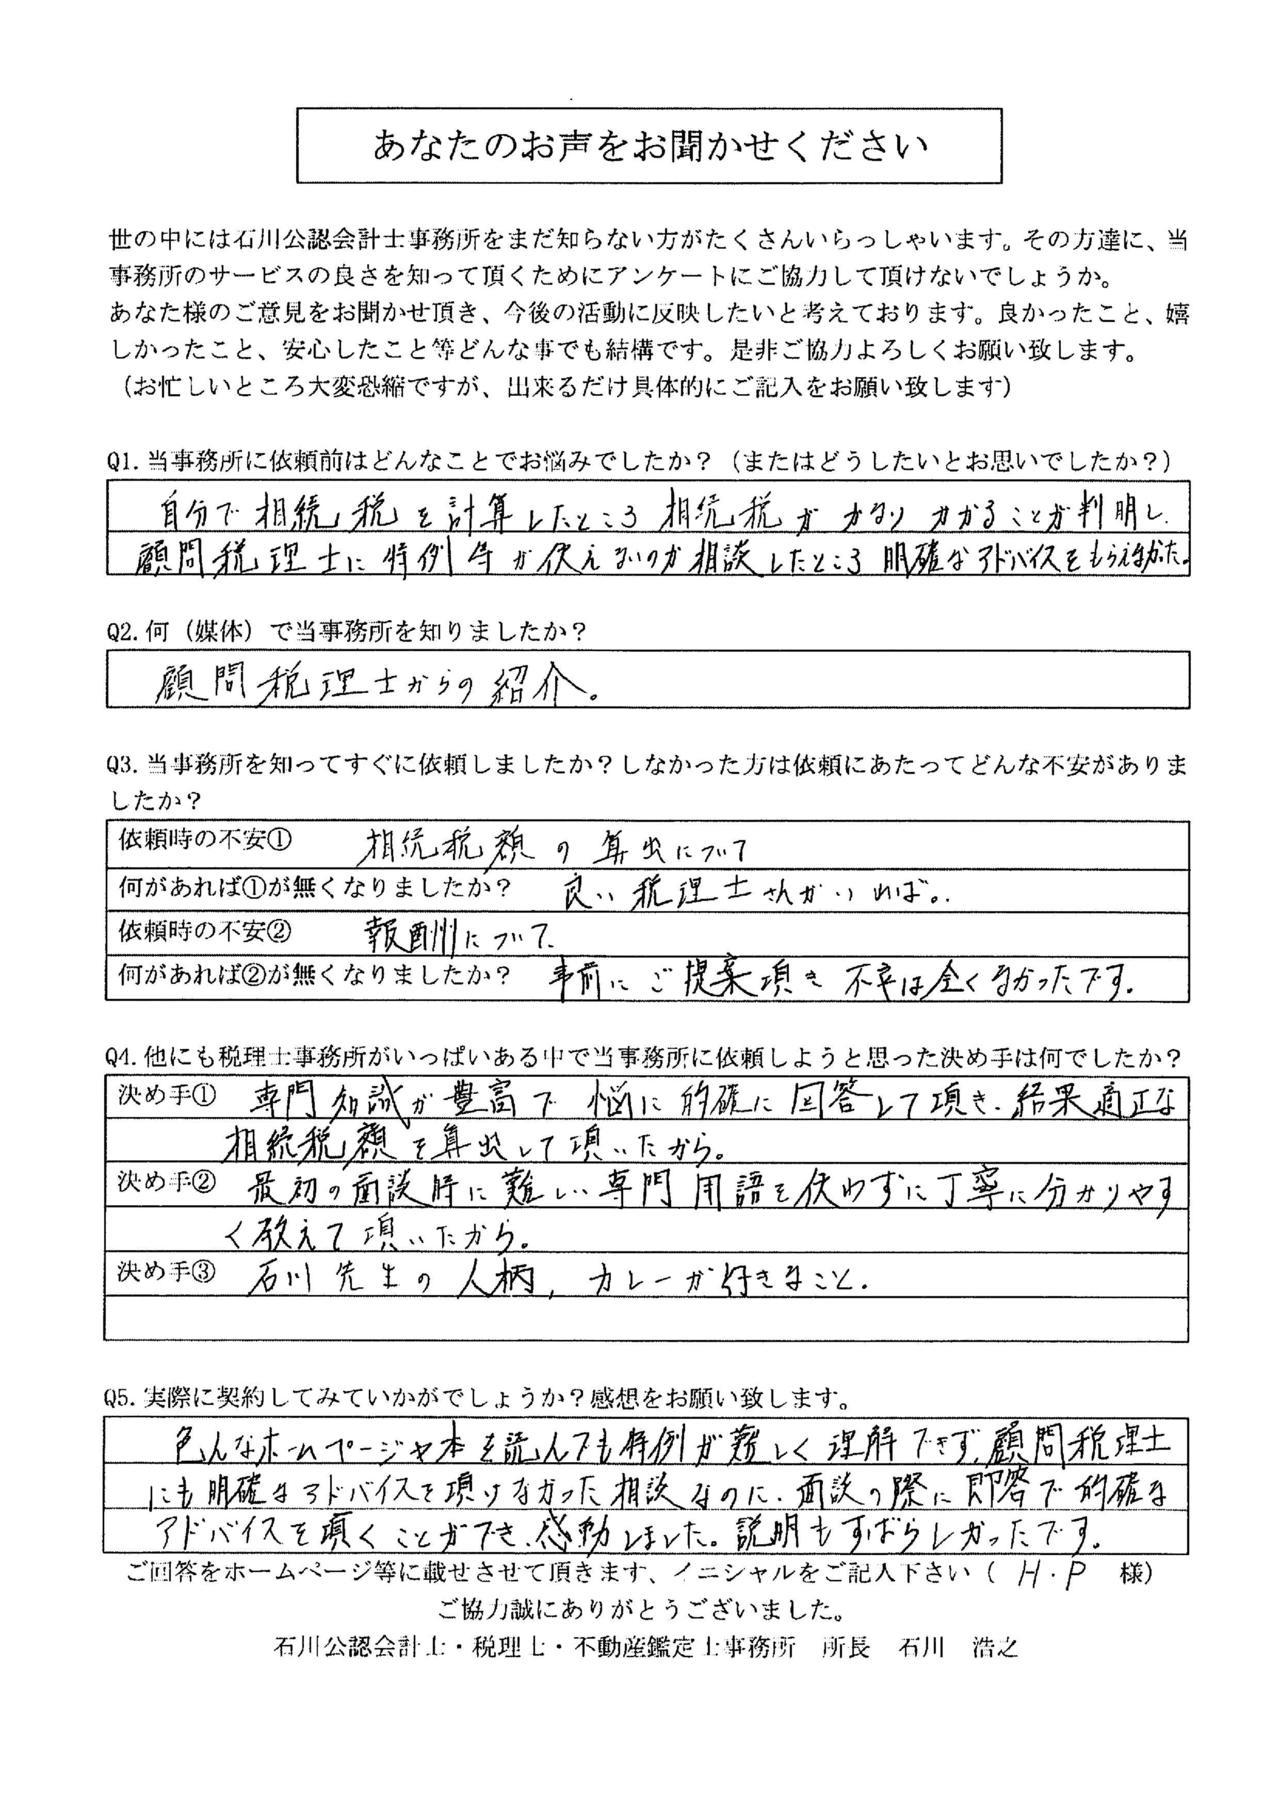 あなたのお声をお聞かせください
世の中には石川公認会計士事務所をまだ知らない方がたくさんいらっしゃいます。その方達に、当
事務所のサービスの良さを知って頂くためにアンケートにご協力して頂けないでしょうか。
あなた様のご意見をお聞かせ頂き、今後の活動に反映したいと考えております。良かったこと、嬉
しかったこと、安心したこと等どんな事でも結構です。是非ご協力よろしくお願い致します。
（お忙しいところ大変恐縮ですが、出来るだけ具体的にご記入をお願い致します）
Q1.当事務所に依頼前はどんなことでお悩みでしたか？（またはどうしたいとお思いでしたか？）
自分で相続税を計算したところ相続税がかなりかかることが判明し、
顧問税理士に特例等が使えないのか相談したところ明確なアドバイスをもらえなかった。
Q2.何（媒体）で当事務所を知りましたか？
顧問税理士からの紹介。
Q3.当事務所を知ってすぐに依頼しましたか？しなかった方は依頼にあたってどんな不安がありま
したか？
依頼時の不安① 相続税額の算出について
何があれば①が無くなりましたか？ 良い税理士さんがいれば。
依頼時の不安② 報酬について
何があれば②が無くなりましたか？ 事前にご提案頂き不安は全くなかったです。
Q4.他にも税理士事務所がいっぱいある中で当事務所に依頼しようと思った決め手は何でしたか？
決め手① 専門知識が豊富で悩に的確に回答して頂き、結果適正な
相続税額を算出して頂いたから。
決め手② 最初の面談時に難しい専門用語を使わずに丁寧に分かりやす
く教えて頂いたから。
決め手③ 石川先生の人柄，カレーが好きなこと.
Q5.実際に契約してみていかがでしょうか？感想をお願い致します。
色んなホームページや本を読んでも特例が難しく理解できず、顧問税理士
にも明確なアドバイスを頂けなかった相談なのに、面談の際に即答で的確な
アドバイスを頂くことができ、感動しました。説明もすばらしかったです。
ご回答をホームページ等に載せさせて頂きます、イニシャルをご記入下さい（ H・P 様）
ご協力誠にありがとうございました。
石川公認会計士・税理士・不動産鑑定士事務所 所長 石川 浩之